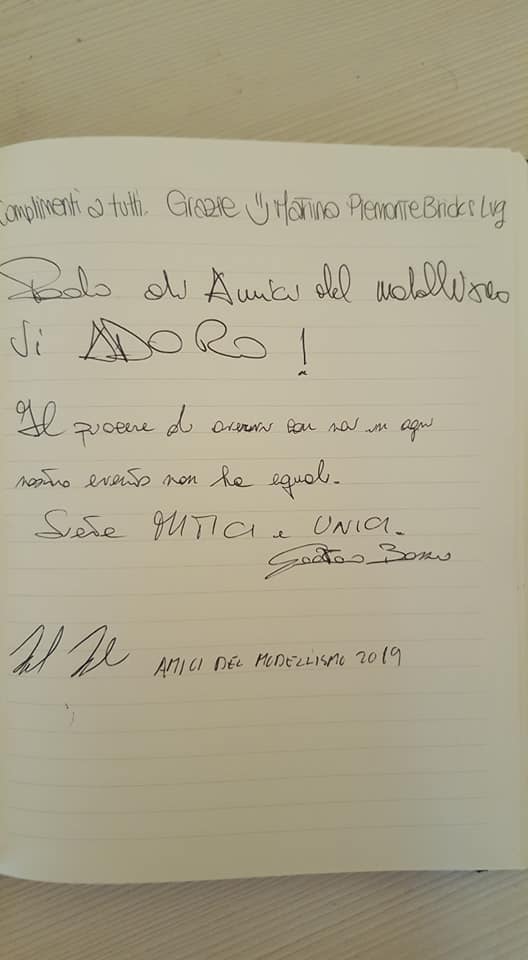 Complimenti a tutti. Grazie :) Marino Piemonte Bricks Lug
Paolo di Amici del modellismo
Vi ADORO!
Il piacere di avervi con noi in ogni
nostro evento non ha eguali.
Siete MITICI e UNICI.
Gaetano
AMICI DEL MODELLISMO 2019